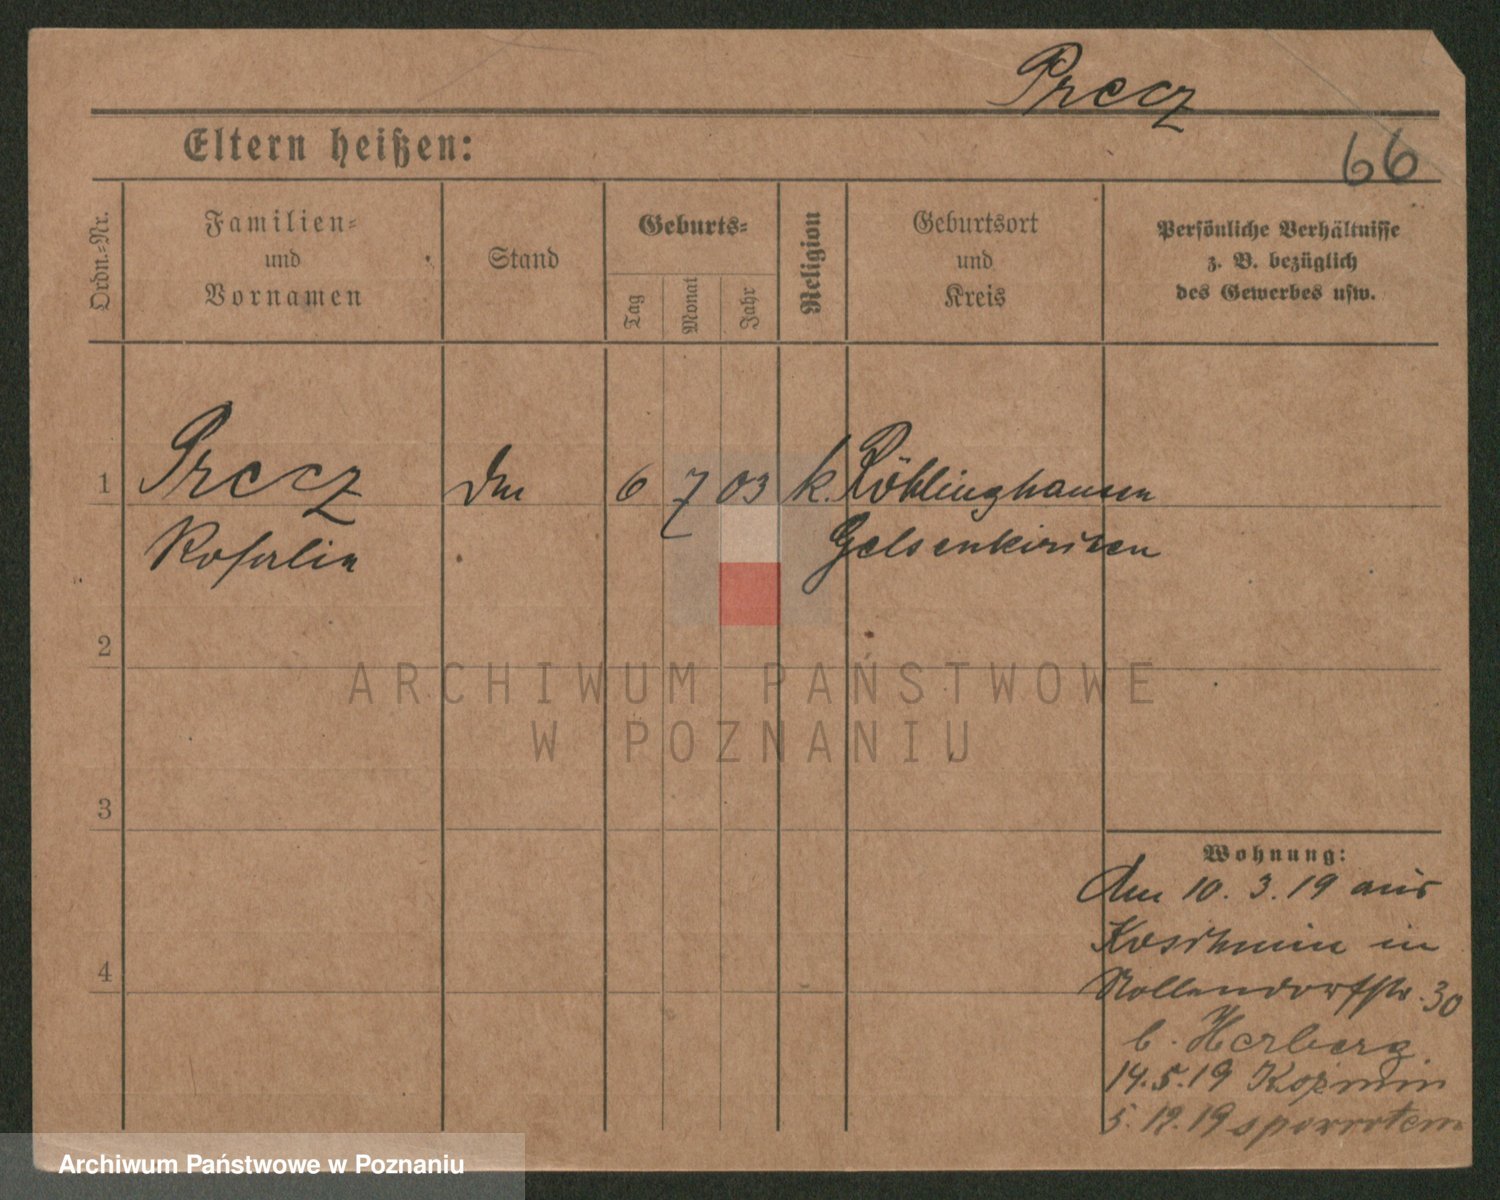 Precz
Eltern heißen:
66
Ordn.-Nr.
Familien-
und
Vornamen
Stand
Geburts-
Tag
Monat
Jahr
Religion
Geburtsort
und
Kreis
Persönliche Verhältnisse
z. B. bezüglich
des Gewerbes usw.
1
Precz
6 7 03 k. Röhlinghausen
Rosalia
Gelsenkirchen
2
3
4
Wohnung:
Am 10. 3. 19 aus
Koschmin in
Nollendorfstr. 30
b. Herberg.
14.5.19 Koźmin
5. 12. 19 z powrotem
ARCHIWUM PAŃSTWOWE
W POZNANIU
Archiwum Państwowe w Poznaniu